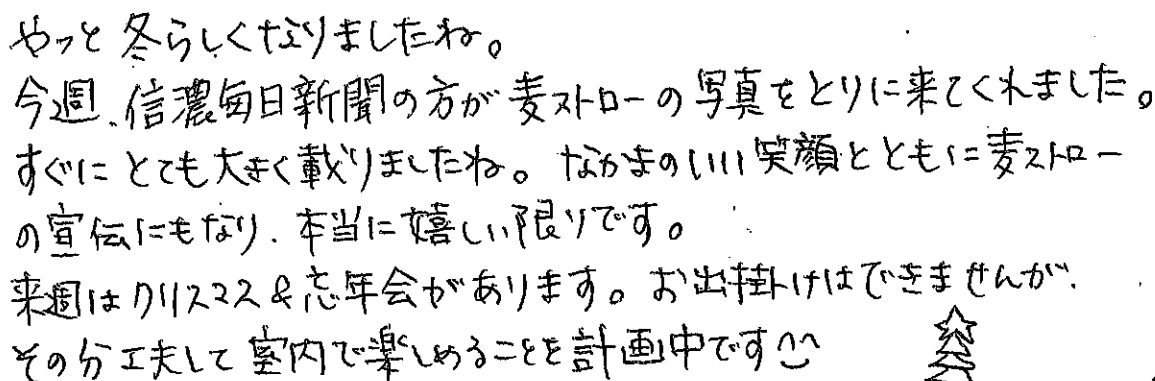 やっと冬らしくなりましたね。
今週、信濃毎日新聞の方が麦ストローの写真をとりに来てくれました。
すぐにとても大きく載りましたね。なかまのいい笑顔とともに麦ストロー
の宣伝にもなり、本当に嬉しい限りです。
来週はクリスマス&忘年会があります。お出掛けはできませんが、
その分工夫して室内で楽しめることを計画中です^^